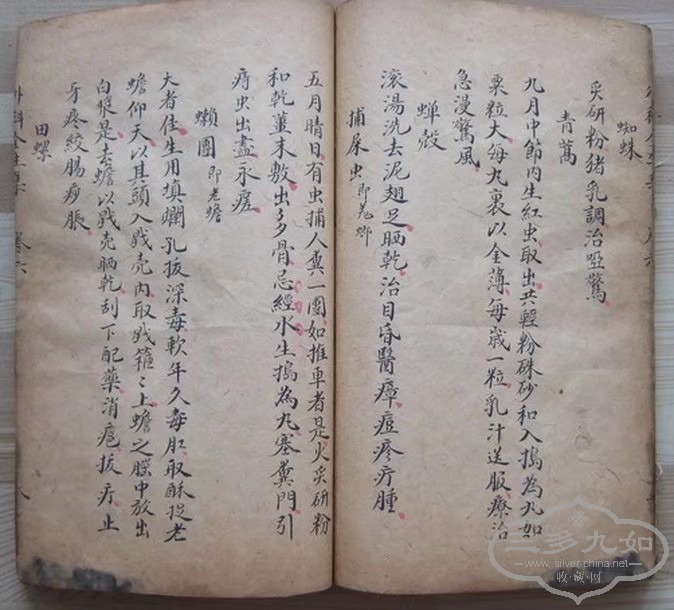 蜘蛛
炙研粉猪乳調治啞驚
青蒿
九月中節内生紅虫取出共輕粉硃砂和入搗為丸如
粟粒大每丸裹以金薄每歲一粒乳汁送服療治
急漫驚風
蝉殼
滾湯洗去泥翅足晒乾治目昏醫瘴痘疹疔腫
捕屎虫即羌螂
五月晴日有虫捕人糞一團如推車者是火炙研粉
和乾薑末敷出多骨忌經水生搗為丸塞糞門引
痔虫出盡永痊
癩團即老蟾
大者佳生用填爛孔拔深毒軟年久毒肛取酥捉老
蟾仰天以其頭入戥壳内取戥箍〻上蟾之腮中放出
白漿是去蟾以戥壳晒乾刮下配藥消疤拔疔止
牙疼絞腸痧脹
田螺
外科全生
卷六
八
三多九如
www.silver-china.net
收藏网